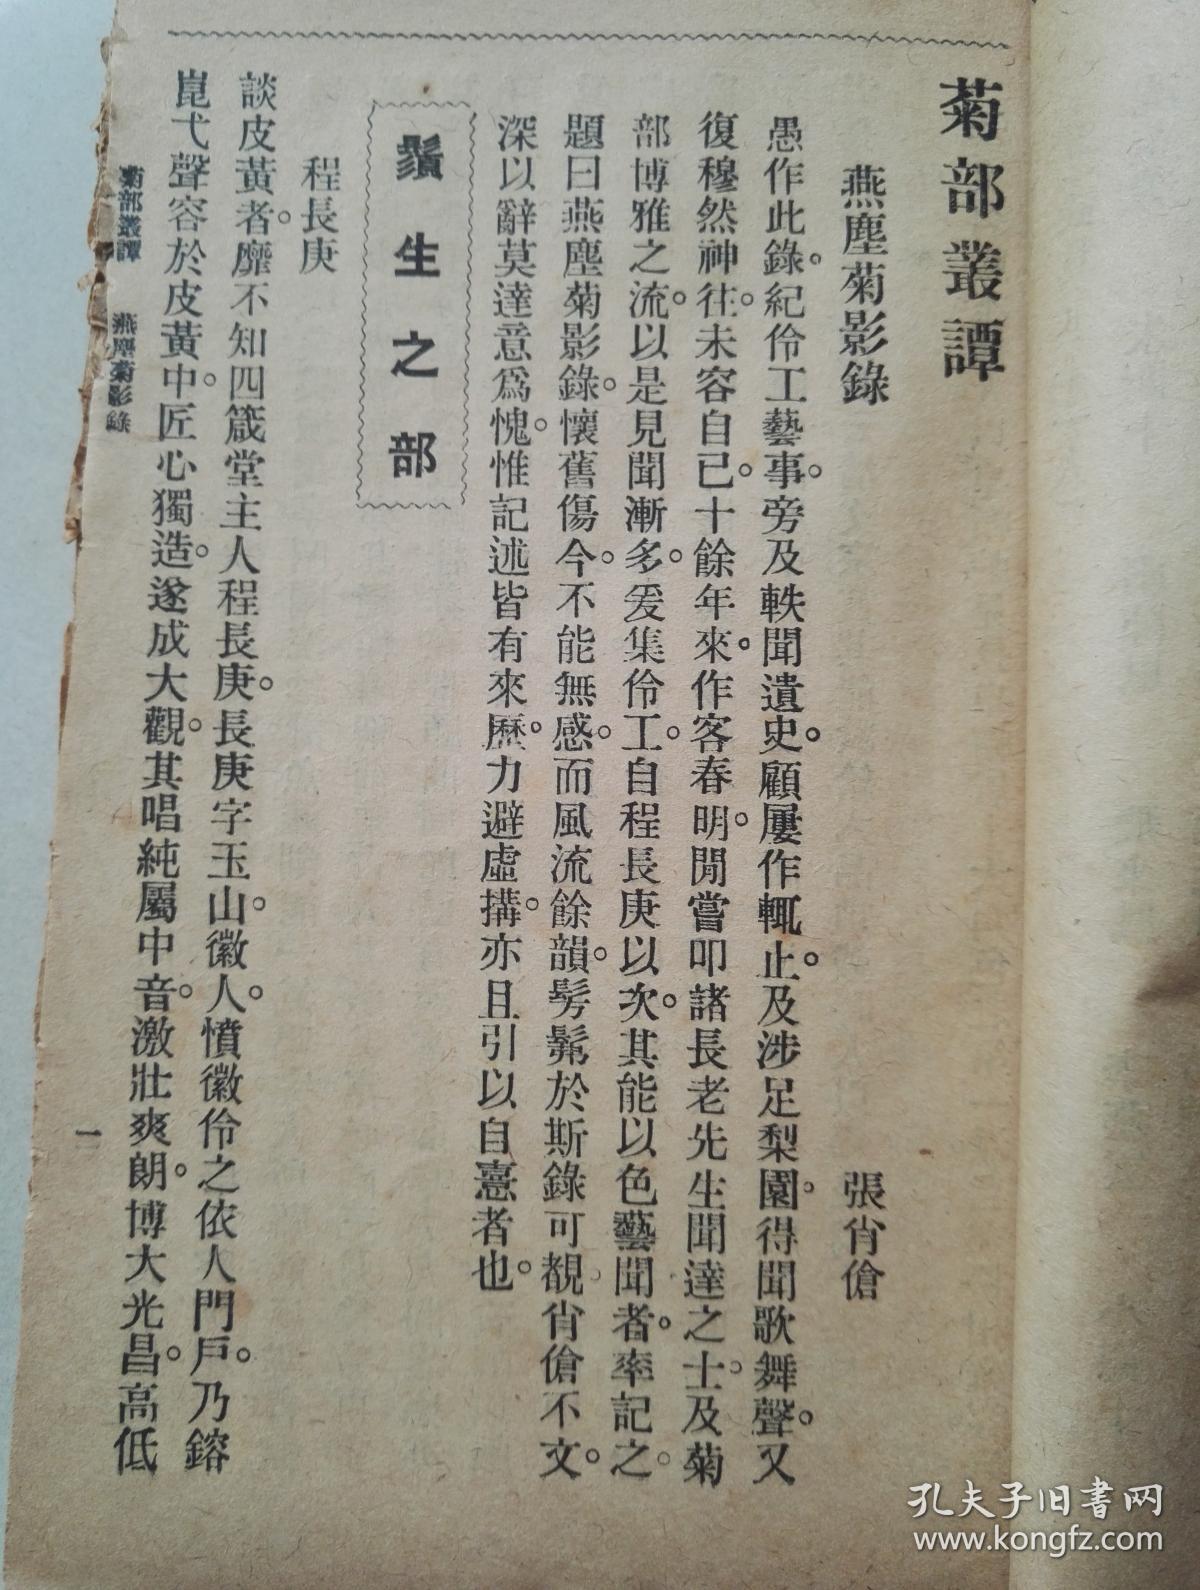 菊部叢譚
燕塵菊影錄
張肖傖
愚作此錄。紀伶工藝事。旁及軼聞遺史。顧屢作輒止。及涉足梨園。得聞歌舞聲。又
復穆然神往。未容自已。十餘年來。作客春明。閒嘗叩諸長老先生聞達之士。及菊
部博雅之流。以是見聞漸多。爰集伶工。自程長庚以次。其能以色藝聞者。率記之。
題曰燕塵菊影錄。懷舊傷今。不能無感。而風流餘韻。髣髴於斯錄可覩。肖傖不文。
深以辭莫達意爲愧。惟記述皆有來歷。力避虛搆。亦且引以自憙者也。
鬚生之部
程長庚
談皮黃者。靡不知四箴堂主人程長庚。長庚字玉山。徽人。憤徽伶之依人門戶。乃鎔
崑弋聲容於皮黃中。匠心獨造。遂成大觀。其唱純屬中音。激壯爽朗。博大光昌。高低
菊部叢譚 燕塵菊影錄
一
孔夫子旧书网
www.kongfz.com